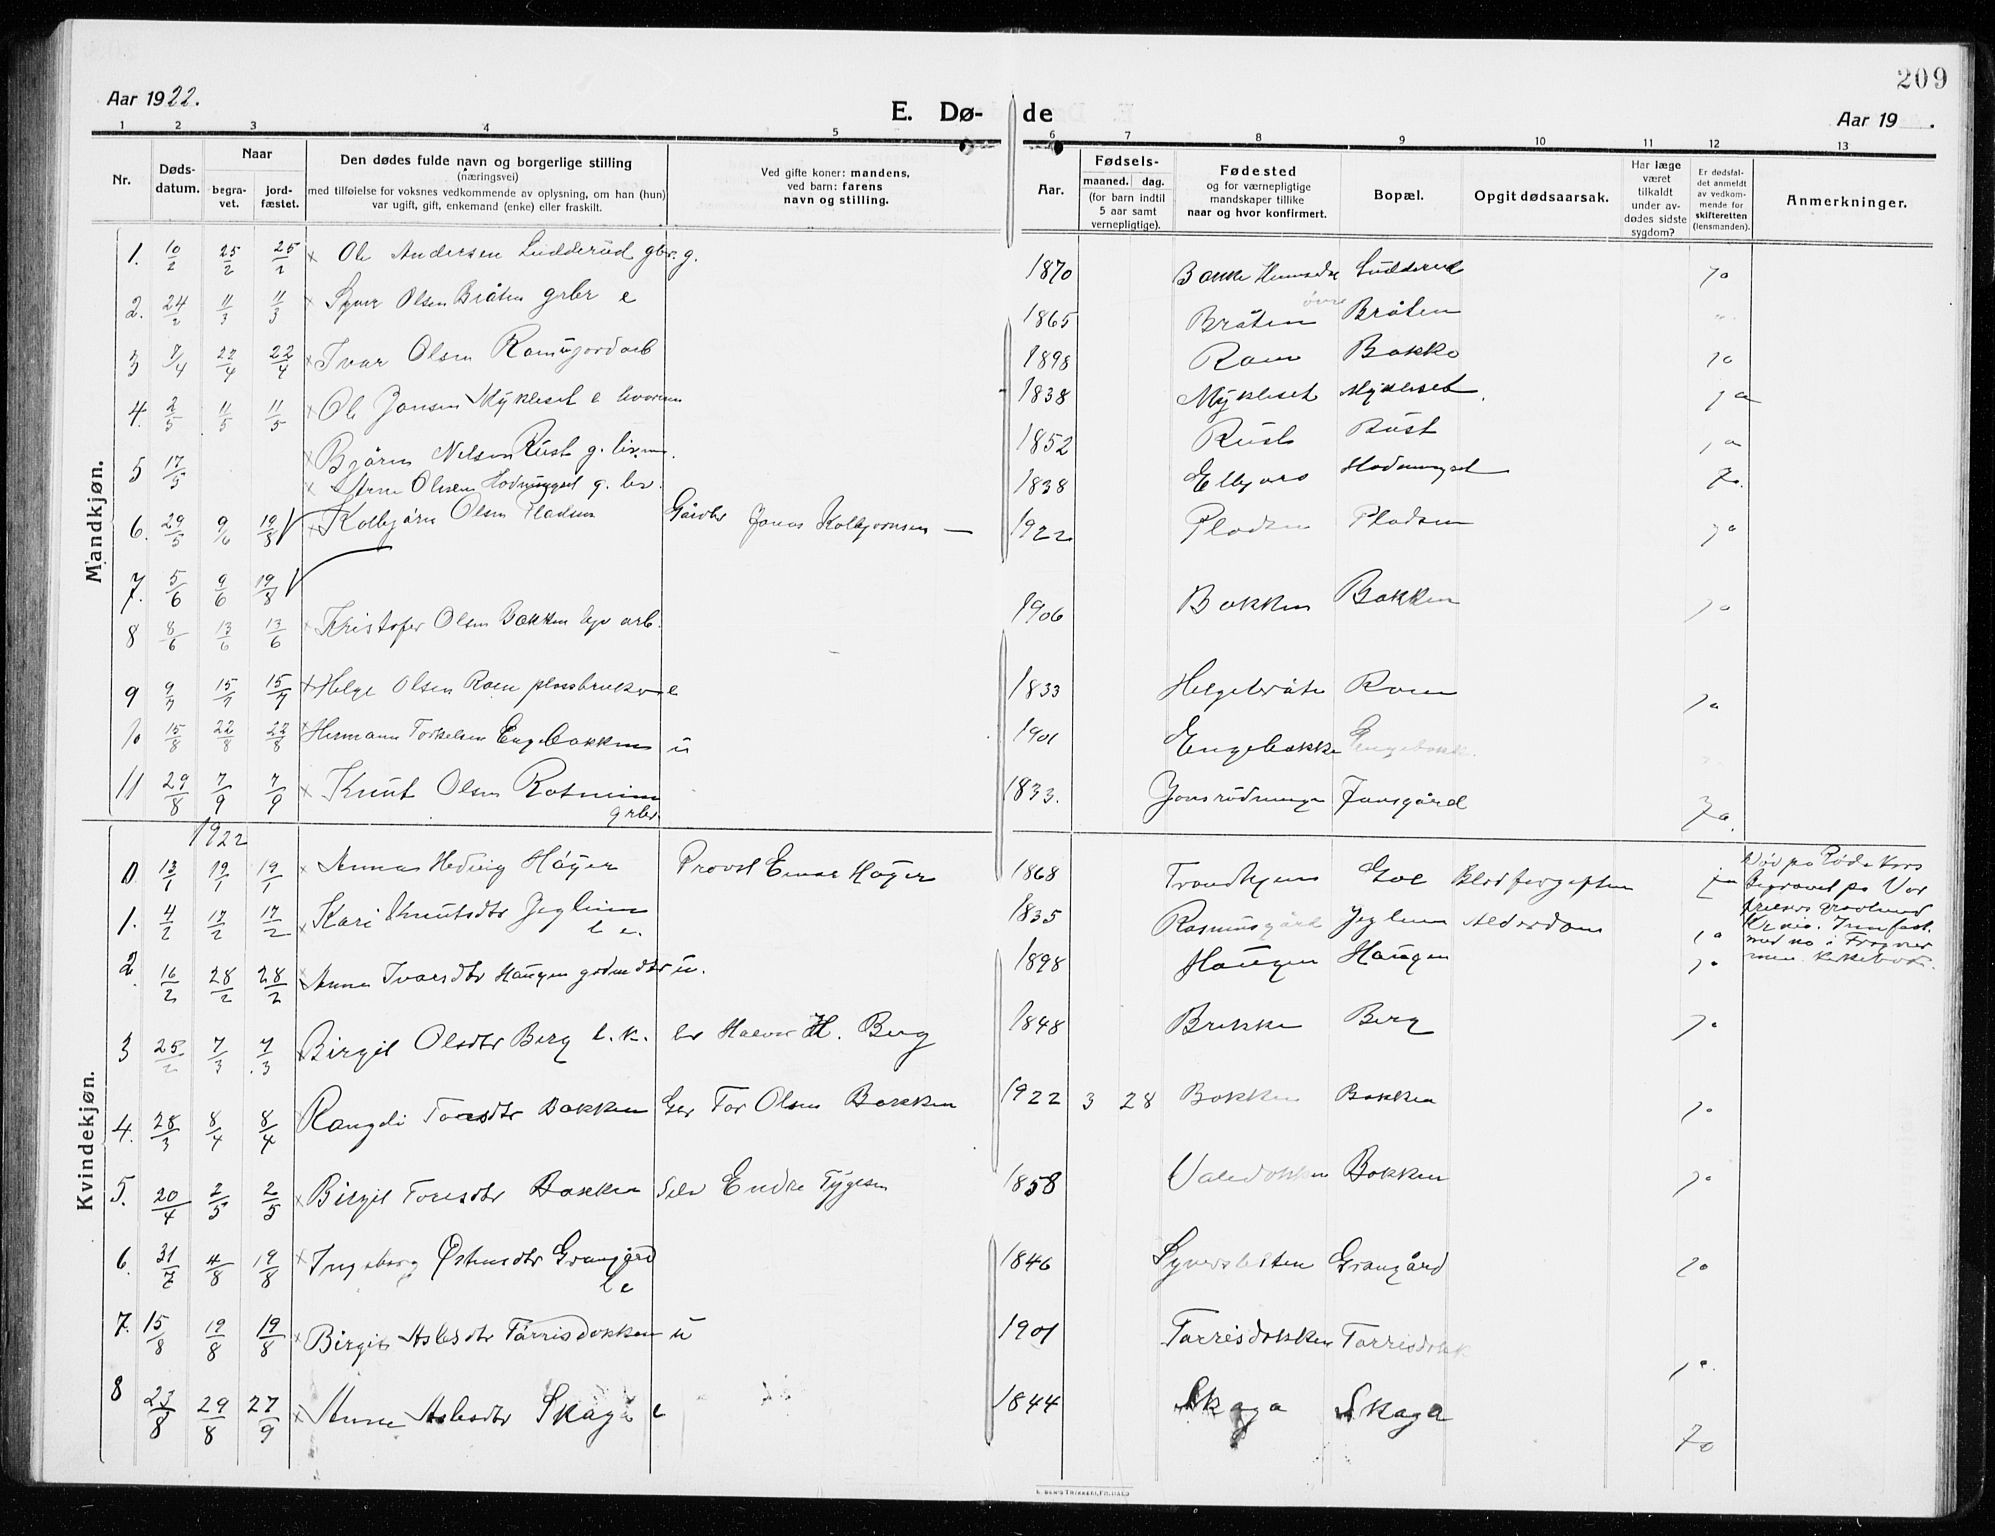 209
Aar 1922.
E. Dø- de
Aar 19 .
1 2 3 4 5 6 7 8 9 10 11 12 13
Nr.
Døds-
datum.
Naar
begra-
vet.
jord-
fæstet.
Den dødes fulde navn og borgerlige stilling
(næringsvei)
med tilføielse for voksnes vedkommende av oplysning, om han (hun)
var ugift, gift, enkemand (enke) eller fraskilt.
Ved gifte koner: mandens,
ved barn: farens
navn og stilling.
Aar.
Fødsels-
maaned. dag.
(for barn indtil
5 aar samt
vernepligtige).
Fødested
og for værnepligtige
mandskaper tillike
naar og hvor konfirmert.
Bopæl.
Opgit dødsaarsak.
Har læge
været
tilkaldt
under av-
dødes sidste
sygdom?
Er dødsfal-
det anmeldt
av vedkom-
mende for
skifteretten
(lensmanden).
Anmerkninger.
Mandkjøn.
1. 10/2 25/2 25/2 x Ole Andersen Ludderud gbr. g. 1870 Bakke Hemsedal Ludderud ja
2. 24/2 11/3 11/3 x Syver Olsen Bråten grbr e 1865 Bråten øvre Bråten
3 7/4 22/4 22/4 x Ivar Olsen Roen u jordarb 1898 Roen Bakko ja
4. 2/5 11/5 11/5 x Ole Jonsen Mykleset e 1838 Mykleset Mykleset ja
5 17/5 x Bjørn Nilsen Rust g. 1852 Rust Rust ja
x Arne Olsen g. 1838 ja
6. 29/5 9/6 19/8 x Kolbjørn Olsen Pladsen Gårdbr Jonas Kolbjørnsen — 1922 Pladsen Pladsen ja
7. 5/6 9/6 19/8
8 8/6 13/6 13/6 x Kristofer Olsen Bakken arb. 1906 Bakken Bakken ja
9 9/7 15/7 15/7 x Helge Olsen Roen plassbruker e 1833 Helgebråte Roen ja
10 15/8 22/8 22/8 x Hermann Torkelsen Engebakken u 1901 Engebakke Engebakk
11 29/8 7/9 7/9 x Knut Olsen Rotneim 1833. Jonsrudninga Jonsgård ja.
grbr.
Kvindekjøn.
1922
0. 13/1 19/1 19/1 x Anna Hedvig Høyer Provst Einar Høyer 1868 Trondhjem Gol Blodforgiften ja Død på Røde Kors
begravet på Vor
Frelsers gravlund
1. 4/2 17/2 17/2 x Kari Knutsdtr Jegleim 1835 Rasmusgård Jegleim Alderdom ja
2. 16/2 28/2 28/2 x Anna Ivarsdtr Haugen u. 1898 Haugen Haugen ja
3 25/2 7/3 7/3 x Birgit Olsdtr Berg Halvor H. Berg 1848 Brekke Berg ja
4. 28/3 8/4 8/4 Rangdi Torsdtr Bakken Gbr Tor Olsen Bakken 1922 3 28 Bakken Bakken ja
5. 20/4 2/5 2/5 x Birgit Toresdtr Bakken Selv Endre Tygesen 1858 Bakken ja
6. 31/7 4/8 19/8 x Ingeborg Østensdtr Grangård 1846 Syversletten Grangård ja
7. 15/8 19/8 19/8 x Birgit Aslesdtr Tårrisdokken u 1901 Torrisdokken Torrisdokk ja
8 23/8 29/8 27/9 x Anne Aslesdtr Skaga e 1844 Skaga Skaga ja